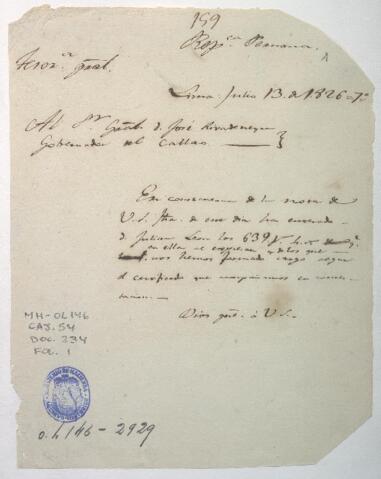 159
Rep.ca Peruana
Tesor.a gral.
Lima Julio 13 de 1826=7º
Al Sr. Gral. d. José Rivadeneyra
Gobernador del Callao
En consecuencia de la nota de
V.S. fha. de este dia ha enterado
d. Julian Leon los 639 p.
en ella se expresan y de los que
nos hemos formado cargo segun
el certificado que acompañamos en contes-
tacion.
Dios gue. á V.S.
MH-OL146
CAJ. 54
DOC. 334
FOL. 1
O.L 146-2929